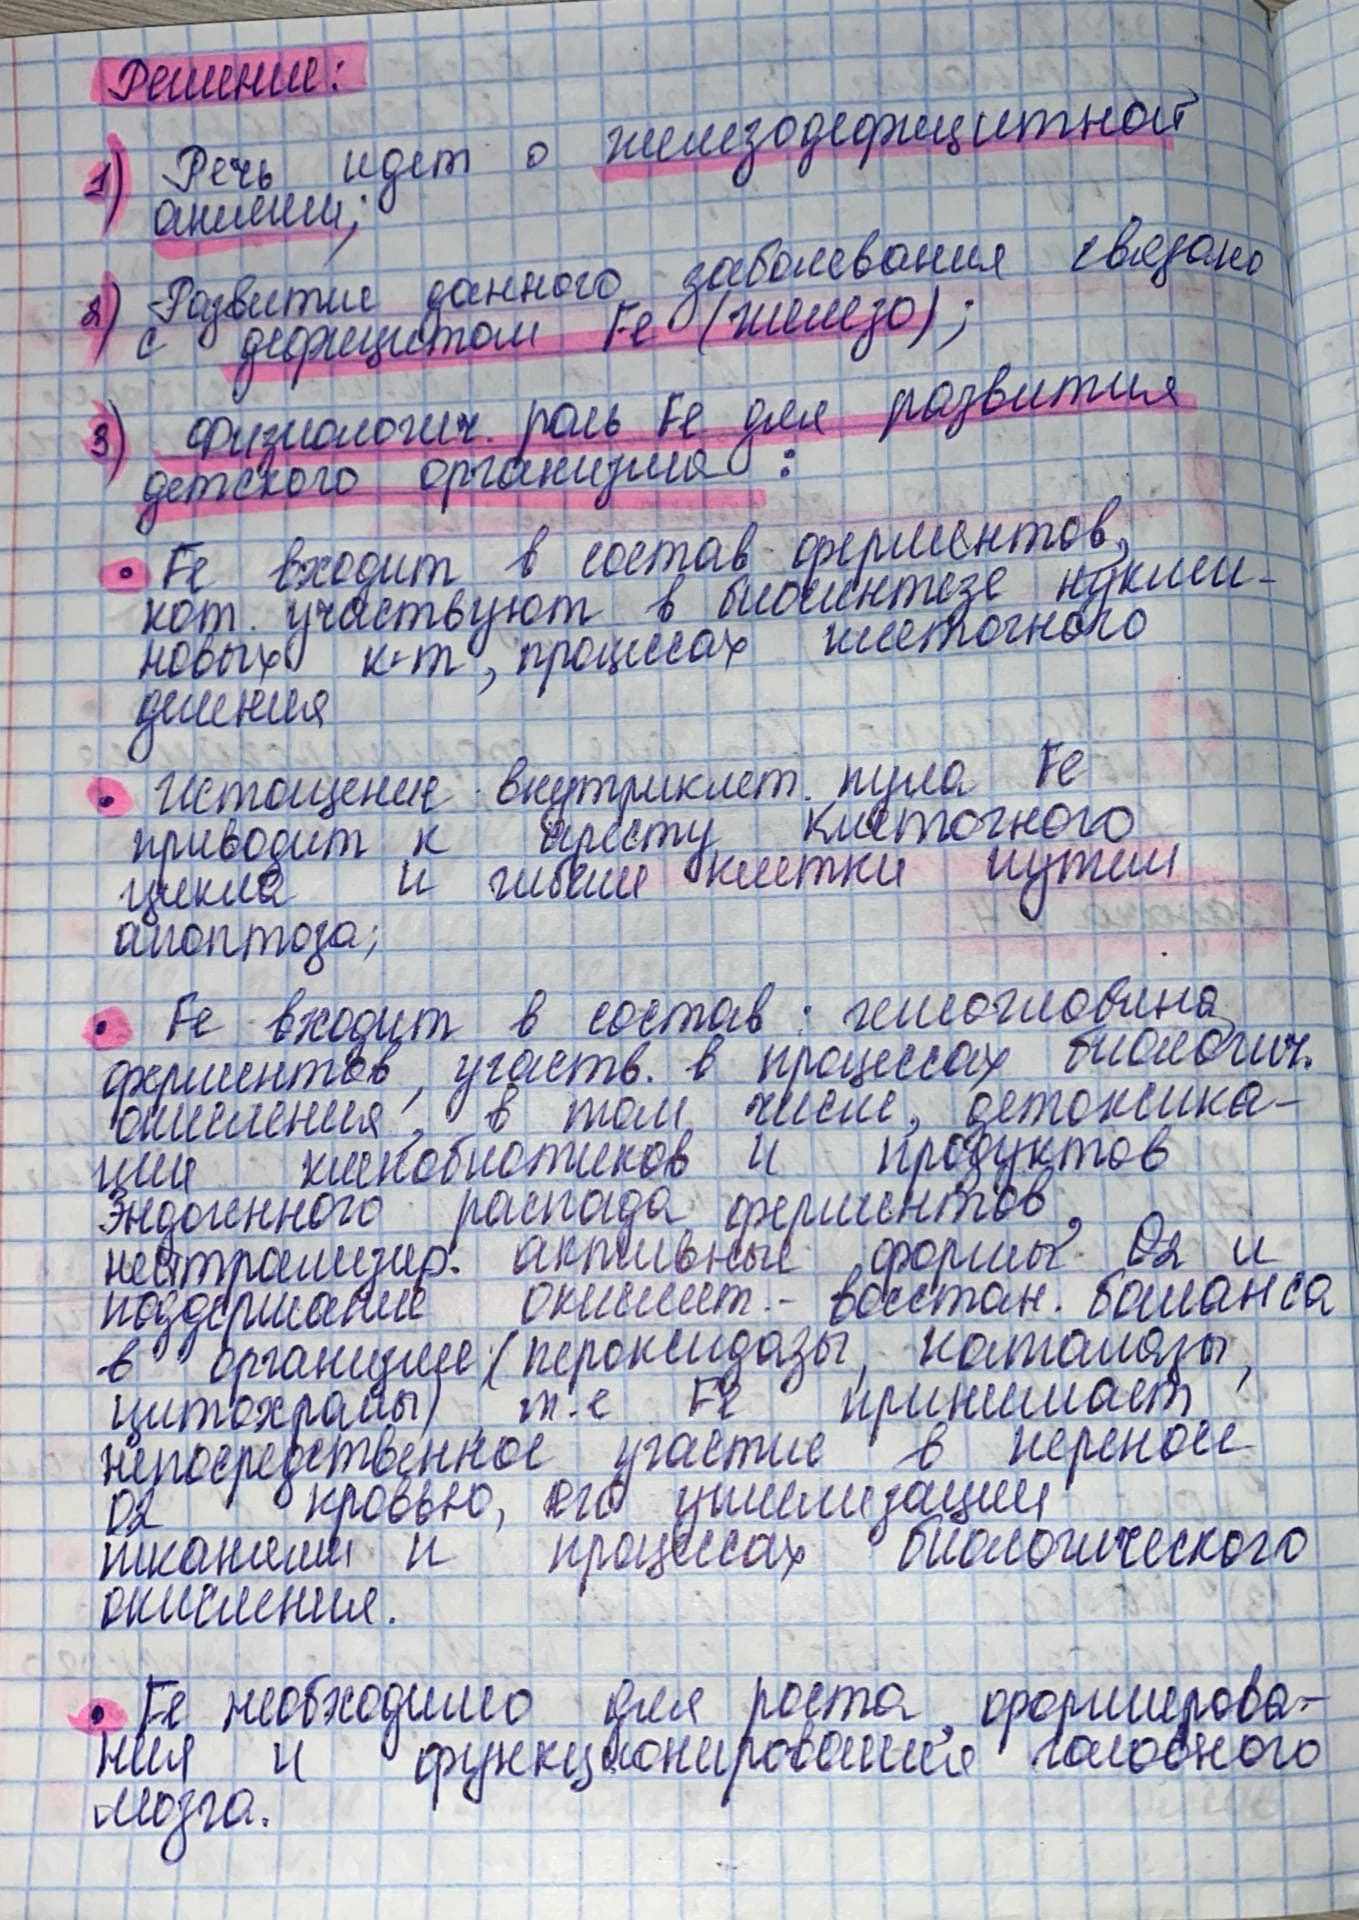 Решение:
1) Речь идет о железодефицитной
анемии;
2) Развитие данного заболевания связано
с дефицитом Fe (железо);
3) Физиологич. роль Fe для развития
детского организма:
• Fe входит в состав ферментов,
кот. участвуют в биосинтезе нуклеи-
новых к-т, процессах клеточного
деления
• Истощение внутриклет. пула Fe
приводит к аресту клеточного
цикла и гибели клетки путем
апоптоза;
• Fe входит в состав: гемоглобина,
ферментов, участв. в процессах биологич.
окисления, в том числе, детоксика-
ции ксенобиотиков и продуктов
эндогенного распада ферментов,
нейтрализир. активные формы O2 и
поддержание окислит.-восстан. баланса
в организме (пероксидазы, каталазы,
цитохромы) т.е Fe принимает
непосредственное участие в переносе
O2 кровью, его утилизации
тканями и процессах биологического
окисления.
• Fe необходимо для роста, формирова-
ния и функционирования головного
мозга.